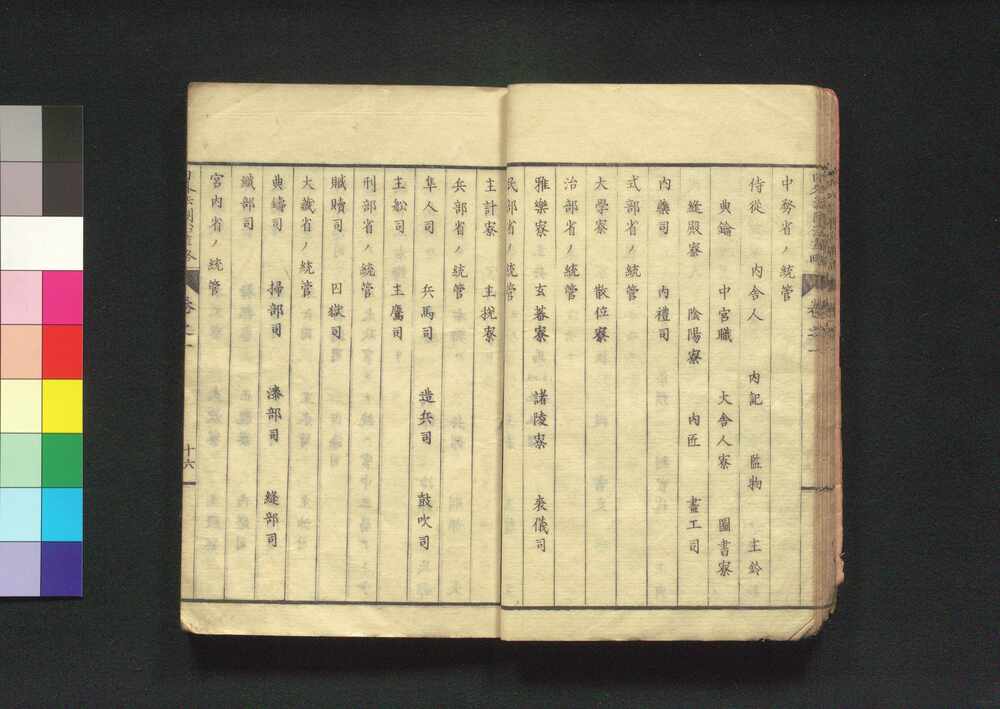 中務省ノ統管
侍從 內舍人 內記 監物 主鈴
典鑰 中宮職 大舍人寮 圖書寮
縫殿寮 陰陽寮 內匠 畫工司
內藥司 內禮司
式部省ノ統管
大學寮 散位寮
治部省ノ統管
雅樂寮 玄蕃寮 諸陵寮 喪儀司
民部省ノ統管
主計寮 主稅寮
兵部省ノ統管
隼人司 兵馬司 造兵司 鼓吹司
主船司 主鷹司
刑部省ノ統管
贓贖司 囚獄司
大藏省ノ統管
典鑄司 掃部司 漆部司 縫部司
織部司
宮內省ノ統管
卷之一
十六